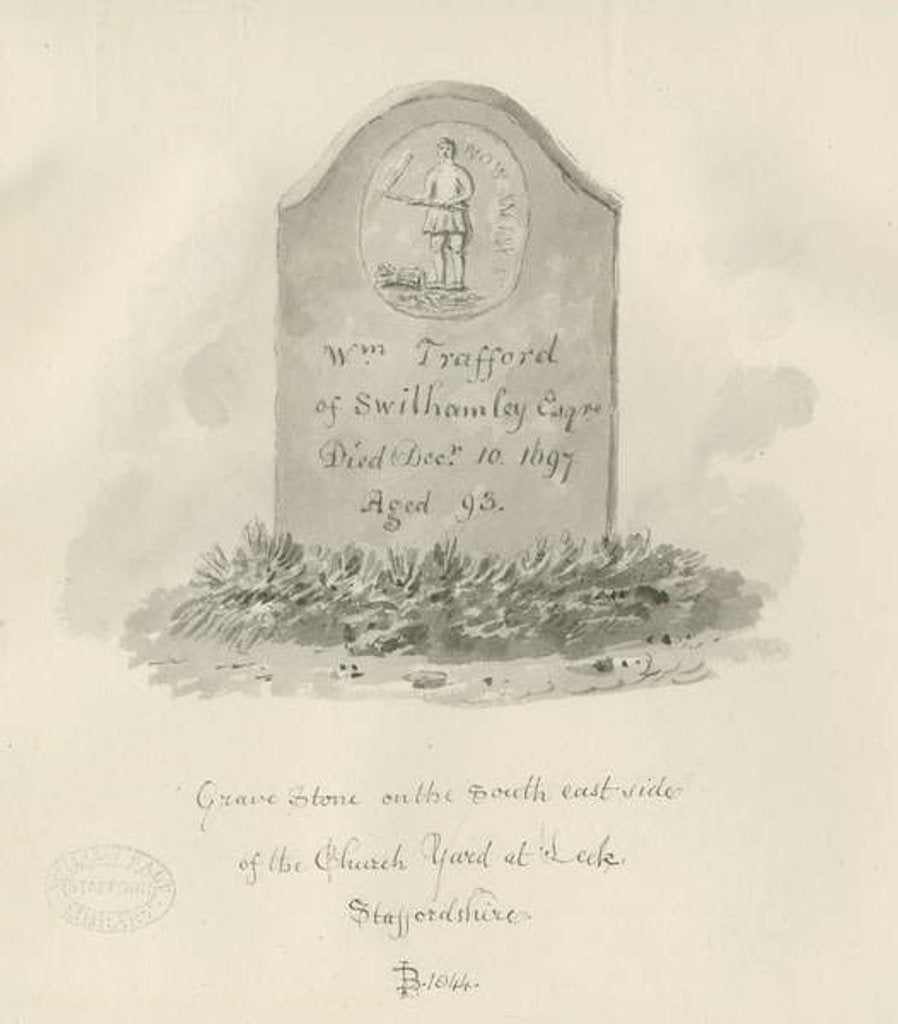 NOW THUS
Wm Trafford
of Swithamley Esqre
Died Decr. 10. 1697
Aged 93.
Grave Stone on the South east side
of the Church Yard at Leek.
Staffordshire.
B. 1844.
WILLIAM SALT
STAFFORD
LIBRARY